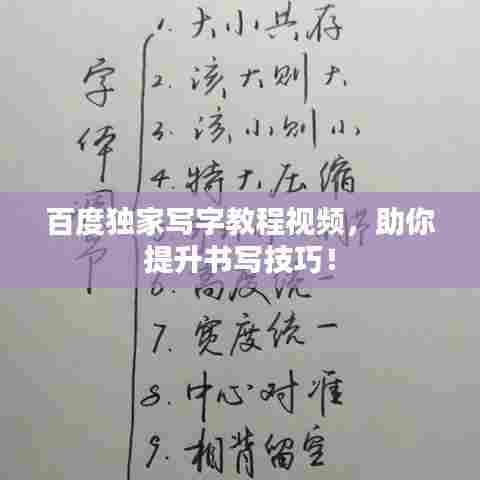 字体调节
1. 大小共存
2. 该大则大
3. 该小则小
4. 特大压缩
百度独家写字教程视频，助你
提升书写技巧！
6. 高度统一
7. 宽度统一
8. 中心对准
9. 相背留空